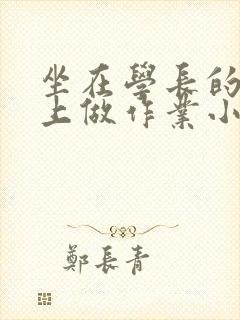 坐在學長的
上做作業小
鄭長青